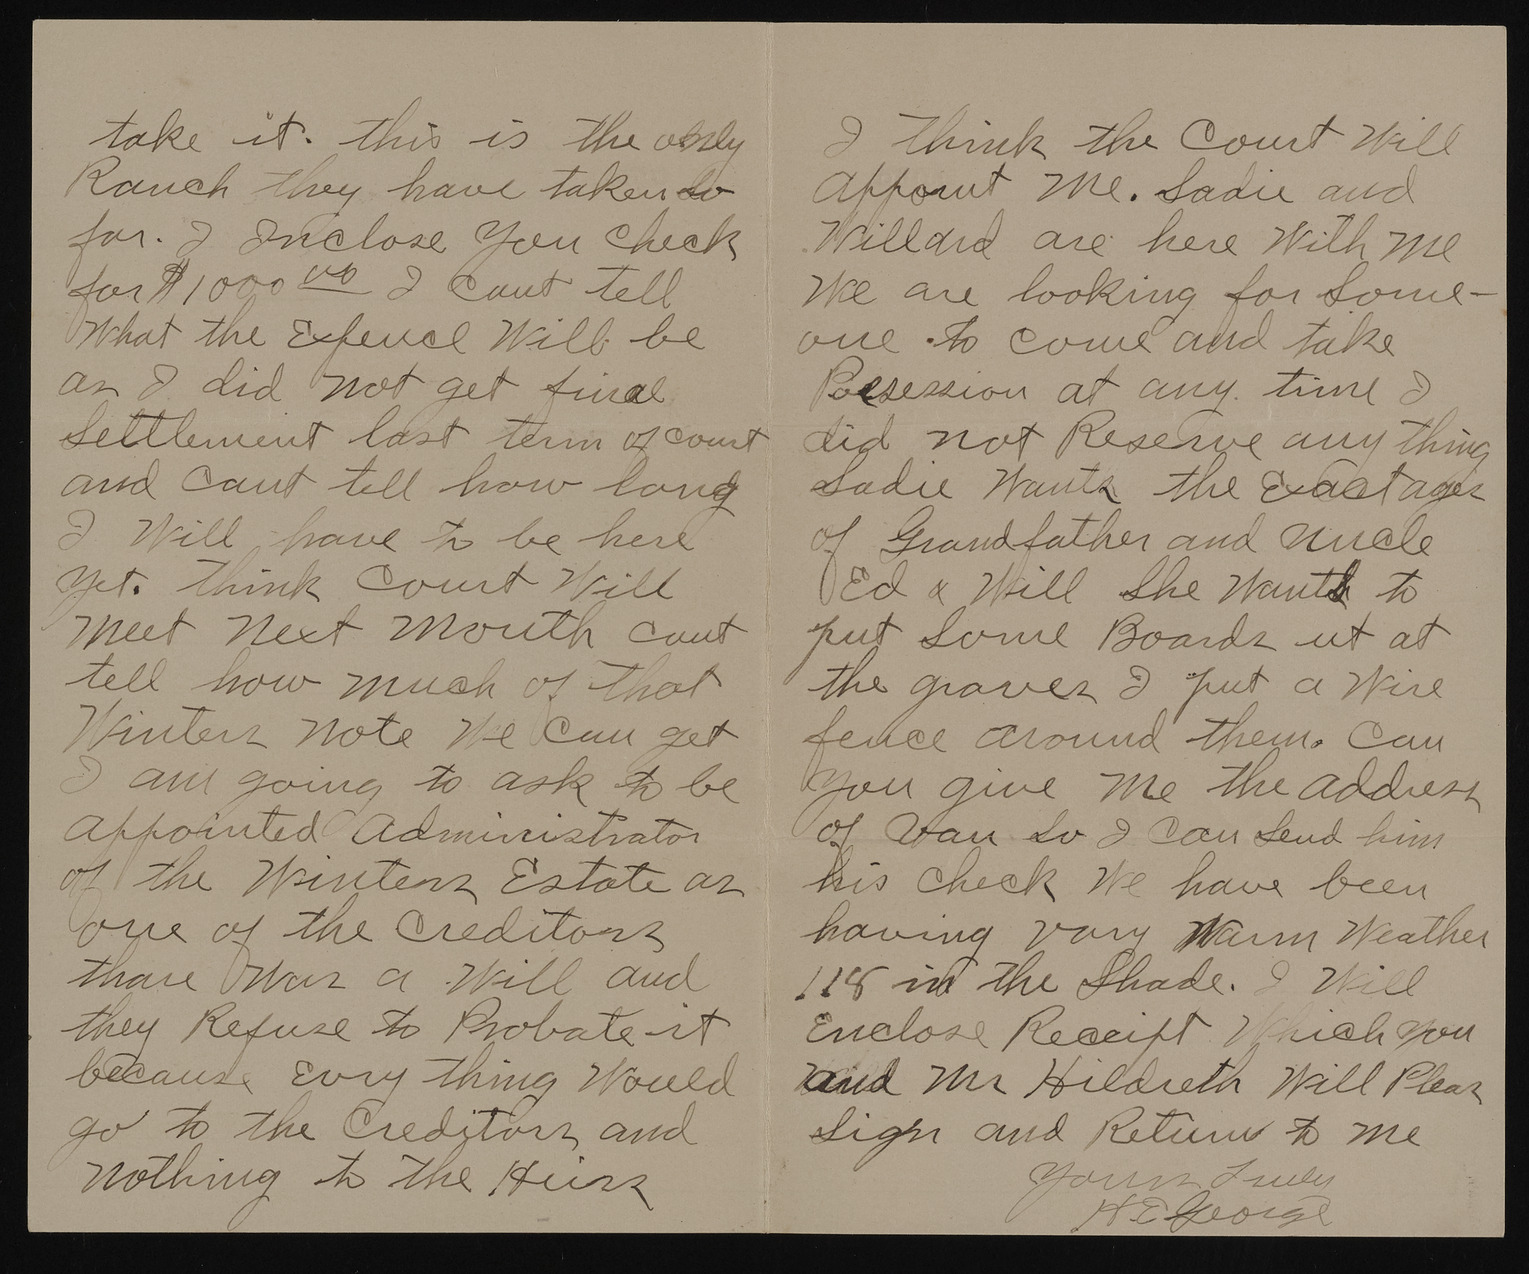 take it. this is the only
Ranch they have taken so
far. I Inclose you check
for $1000 00 I cant tell
What the Expence Will be
as I did not get final
Settlement last term of court
and Cant tell how long
I Will have to be here
yet. think Court Will
Meet Next Month cant
tell how much of that
Winters Note We Can get
I am going to ask to be
appointed Administrator
of the Winters Estate as
one of the Creditors
thare Was a Will and
they Refuse to Probate it
because Evry thing Would
go to the Creditors and
nothing to the Hiirs
I think the Court Will
appoint Me. Sadie and
Willard are here With Me
We are looking for Some-
one to come and take
Posession at any time I
did not Reserve any thing
Sadie Wants the Exact ages
of Grandfather and Uncle
Ed & Will She Wants to
put Some Boards ut at
the graves I put a Wire
fence around them. Can
you give Me the address
of Van So I Can Send him
his check We have been
having vary Warm Weather
118 in the Shade. I Will
Enclose Receipt Which you
and Mr Hildreth Will Pleas
Sign and Return to Me
Yours Truly
H E George